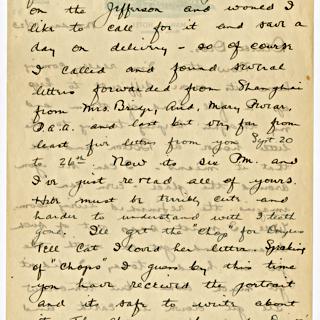 on the Jefferson and would I
like to call for it and save a
day on delivery - so of course
I called and found several
letters forwarded from Shanghai
from Mrs. And, Mary
D.a.a. and last but very far from
least five letters from you Sept 20
to 26th Now its six P.M. and
I've just re-read all of yours.
must be terribly cute and
harder to understand with 1 tooth
gone. I'll get the "chop" for
Tell Cat I loved her letter. Speaking
of "chops" I guess by this time
you have received the portrait
and it safe to write about